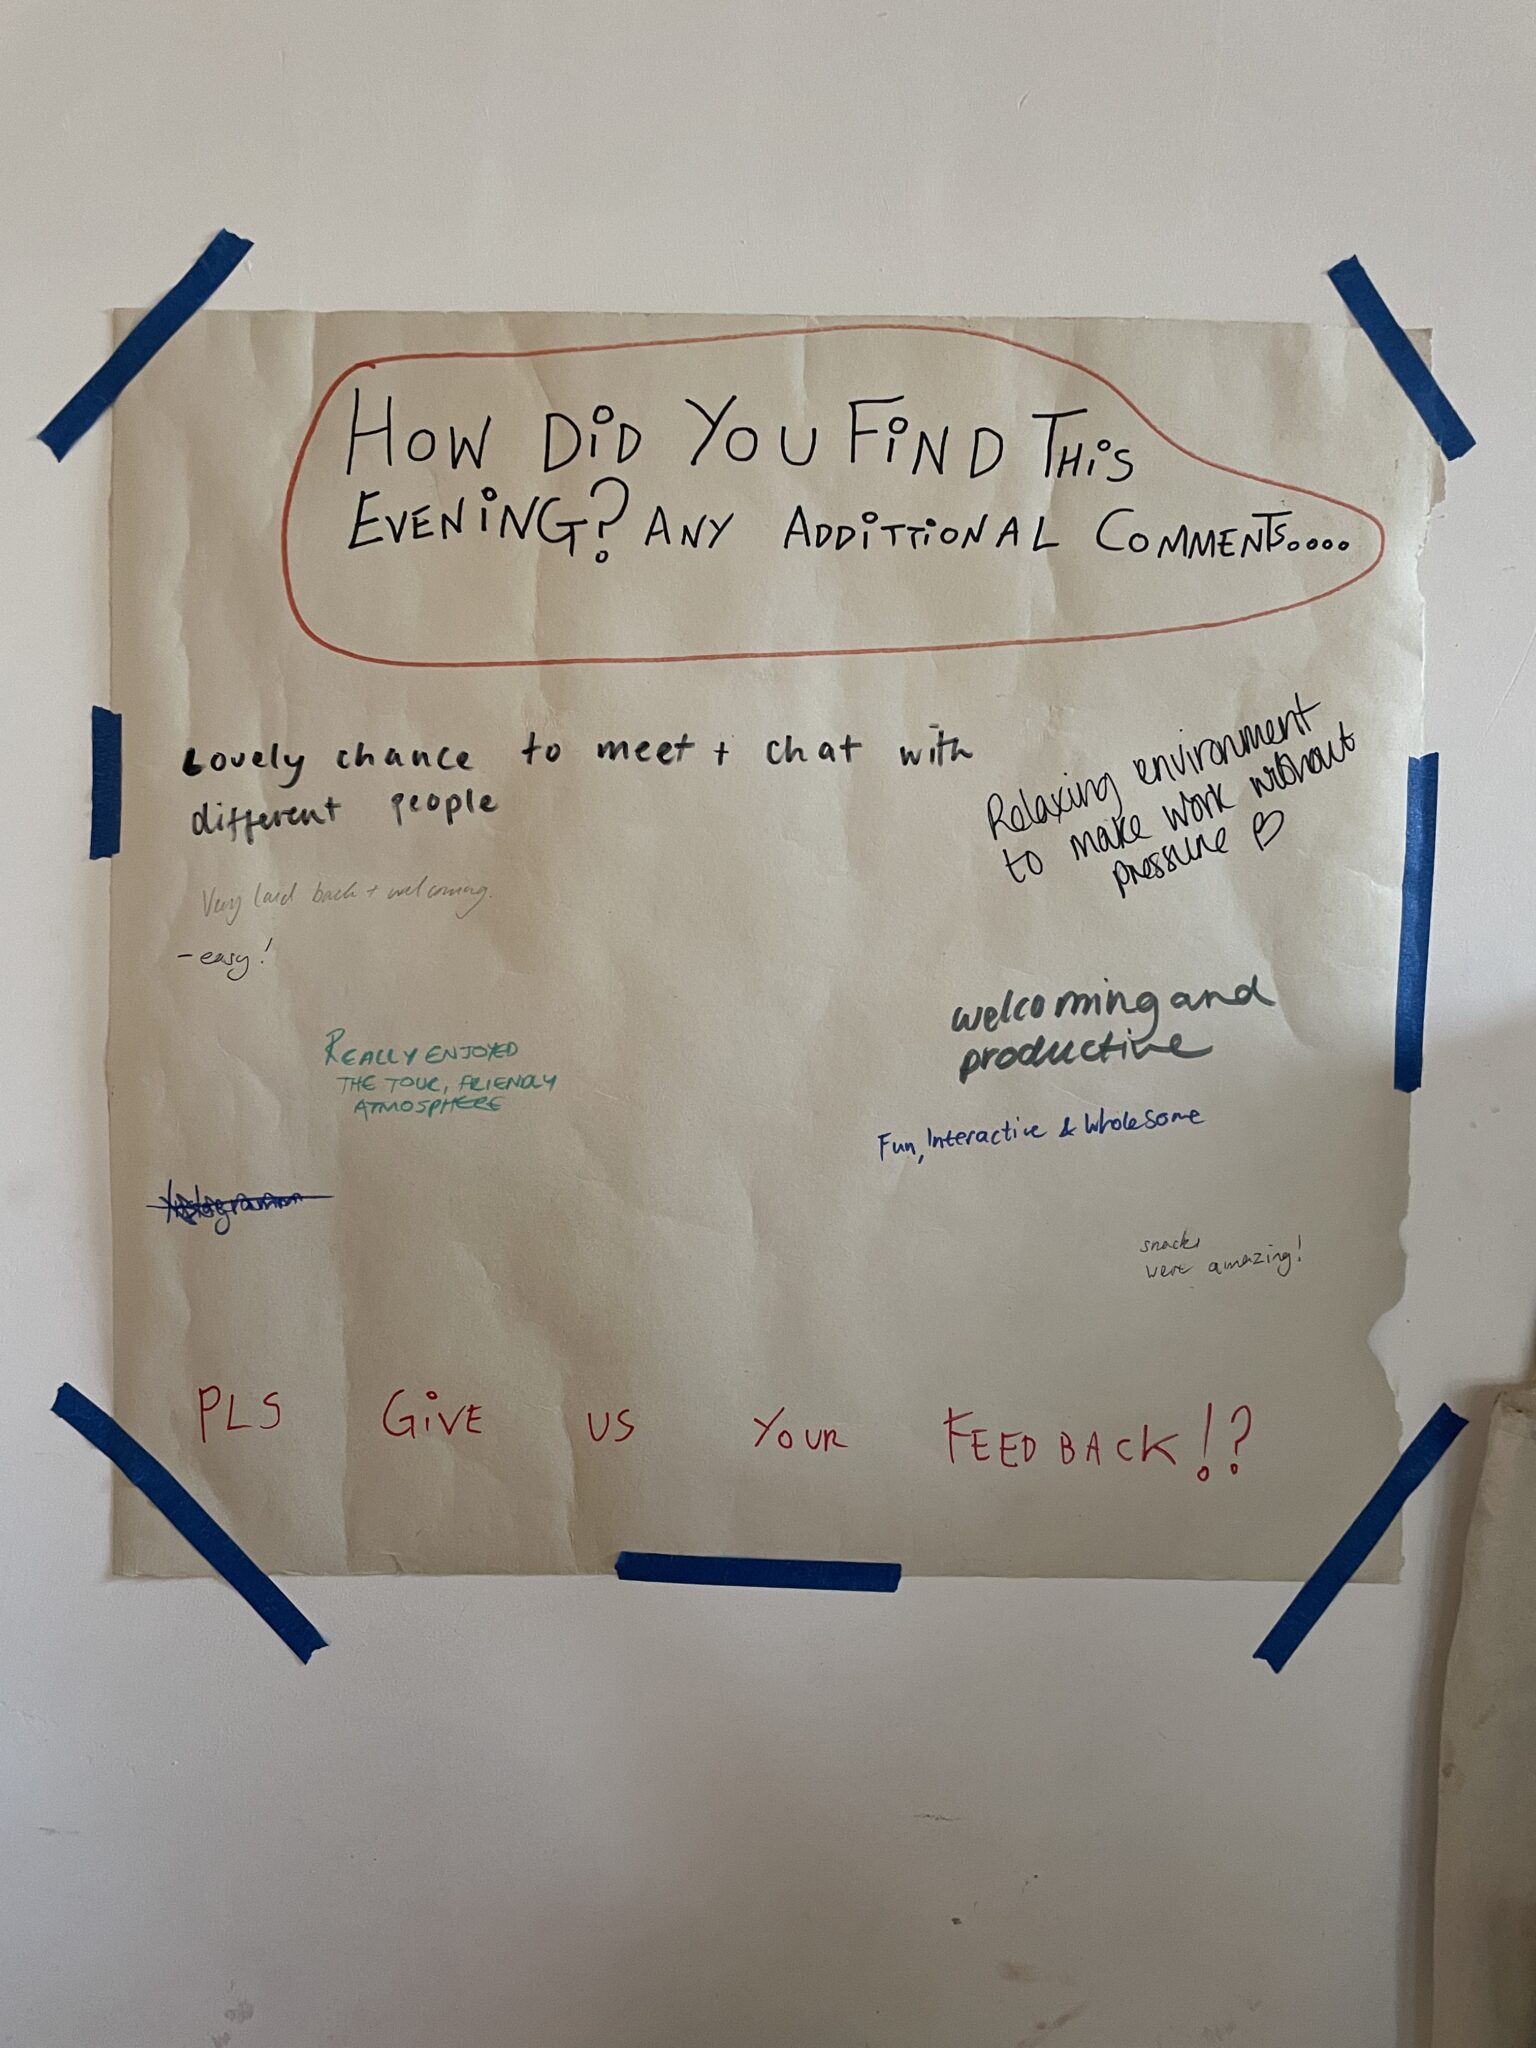 HOW DiD YOU FiND THiS
EVENiNG? ANY ADDiTTiONAL COMMENTS....
Lovely chance to meet + chat with
different people
Relaxing environment
to make work without
pressure
Very laid back + welcoming.
- easy!
welcoming and
productive
REALLY ENJOYED
THE TOUR, FRIENDLY
ATMOSPHERE
Fun, Interactive & Wholesome
snacks
were amazing!
PLS GiVE US YOUR FEEDBACK!?